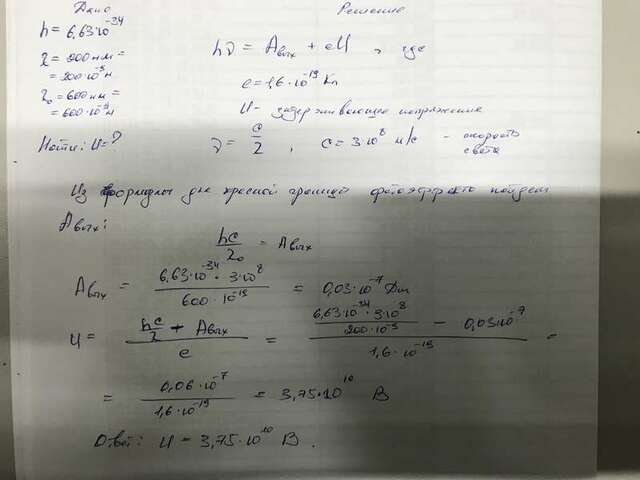 Дано
Решение
h = 6,63·10^-34
λ = 200 нм =
= 200·10^-9 м
λ₀ = 600 нм =
= 600·10^-9 м
Найти: U = ?
hν = Aвых + eU, где
e = 1,6·10^-19 Кл
U – задерживающее напряжение
ν = c/λ, c = 3·10^8 м/с – скорость
света
Из формулы для красной границы фотоэффекта найдем
Aвых:
hc/λ₀ = Aвых
Aвых = 6,63·10^-34 · 3·10^8 / 600·10^-19 = 0,03·10^-7 Дж
U = (hc/λ + Aвых) / e = (6,63·10^-34 · 3·10^8 / 200·10^-9 – 0,03·10^-7) / 1,6·10^-19 =
= 0,06·10^-7 / 1,6·10^-19 = 3,75·10^10 В
Ответ: U = 3,75·10^10 В.